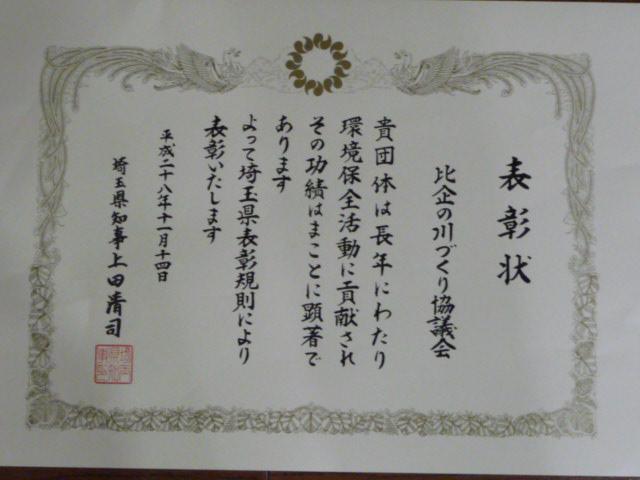 表彰状
比企の川づくり協議会
貴団体は長年にわたり
環境保全活動に貢献され
その功績はまことに顕著で
あります
よって埼玉県表彰規則により
表彰いたします
平成二十八年十一月十四日
埼玉県知事上田清司